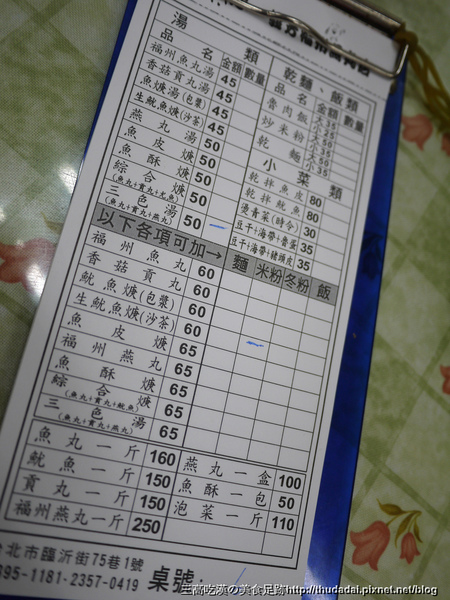 湯類
品名 金額 數量
福州魚丸湯 45
香菇貢丸湯 45
魚焿(包漿) 45
生魷魚焿(沙茶) 45
燕丸湯 50
魚皮焿 50
魚酥焿 50
綜合焿 50
三色湯 50
(魚丸+貢丸+燕丸)
乾麵、飯類
品名 金額 數量
魯肉飯
炒米粉
乾麵
小菜類
乾拌魚皮 80
乾拌魷魚 80
燙青菜(時令) 30
豆干+海帶+魯蛋 35
豆干+海帶+豬頭皮 35
以下各項可加→ 麵 米粉 冬粉 飯
福州魚丸 60
香菇貢丸 60
魷魚焿(包漿) 60
生魷魚焿(沙茶) 60
魚皮焿 65
福州燕丸 65
魚酥焿 65
綜合焿 65
(魚丸+貢丸+魷魚)
三色湯 65
(魚丸+貢丸+燕丸)
魚丸一斤 160
魷魚一斤 150
貢丸一斤 150
福州燕丸一斤 250
燕丸一盒 100
魚酥一包 50
泡菜一斤 110
北市臨沂街75巷1號
395-1181·2357-0419 桌號:
三高吃漢の美食足跡http://thudadai.pixnet.net/blog